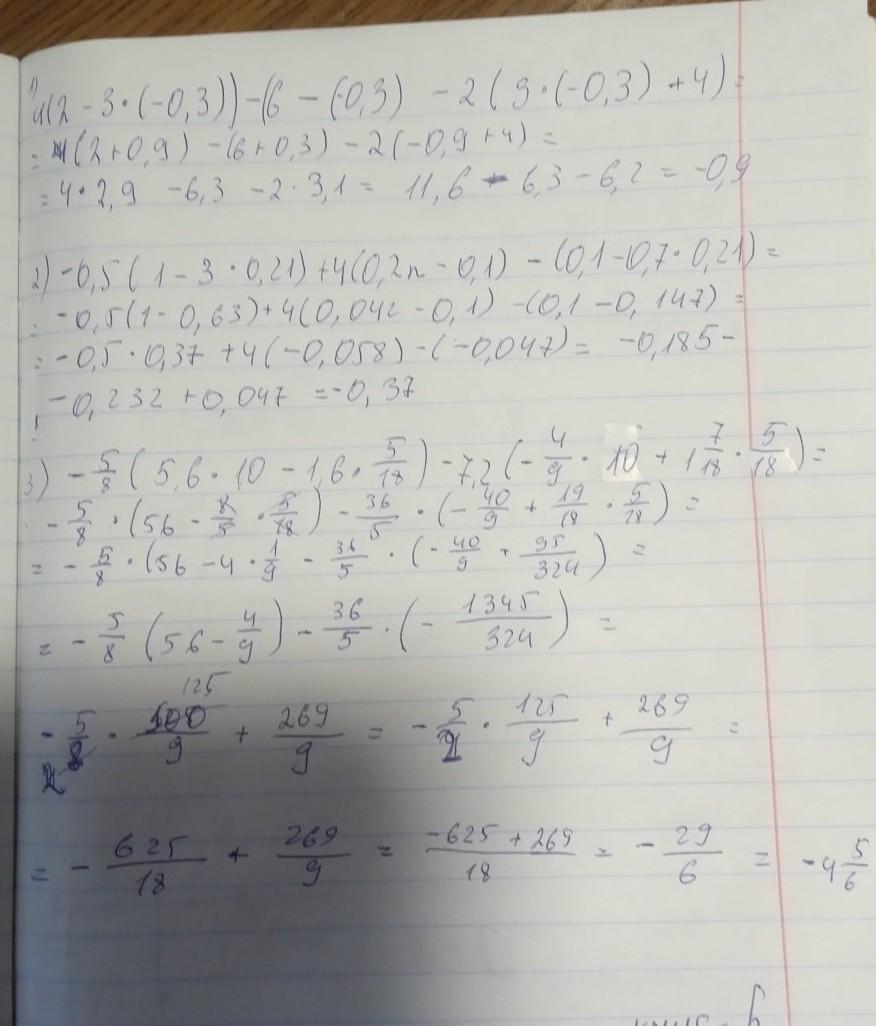 1) 4(2 - 3·(-0,3)) - (6 - (-0,3) - 2(3·(-0,3) + 4) =
= 4(2+0,9) - (6+0,3) - 2(-0,9+4) =
= 4·2,9 - 6,3 - 2·3,1 = 11,6 - 6,3 - 6,2 = -0,9
2) -0,5(1 - 3·0,21) + 4(0,2n - 0,1) - (0,1 - 0,7·0,21) =
= -0,5(1 - 0,63) + 4(0,042 - 0,1) - (0,1 - 0,147) =
= -0,5·0,37 + 4(-0,058) - (-0,047) = -0,185 -
- 0,232 + 0,047 = -0,37
3) - 5/8 (5,6·10 - 1,6·5/18) - 7,2(- 4/9·10 + 1 7/18·5/18) =
- 5/8·(56 - 8/5·5/18) - 36/5·(- 40/9 + 19/18·5/18) =
= - 5/8·(56 - 4·1/9 - 36/5·(- 40/9 + 95/324) =
= - 5/8 (56 - 4/9) - 36/5·(- 1345/324) =
125
- 5/8·500/9 + 269/9 = - 5/2·125/9 + 269/9 =
2
= - 625/18 + 269/9 = -625 + 269/18 = - 29/6 = -4 5/6